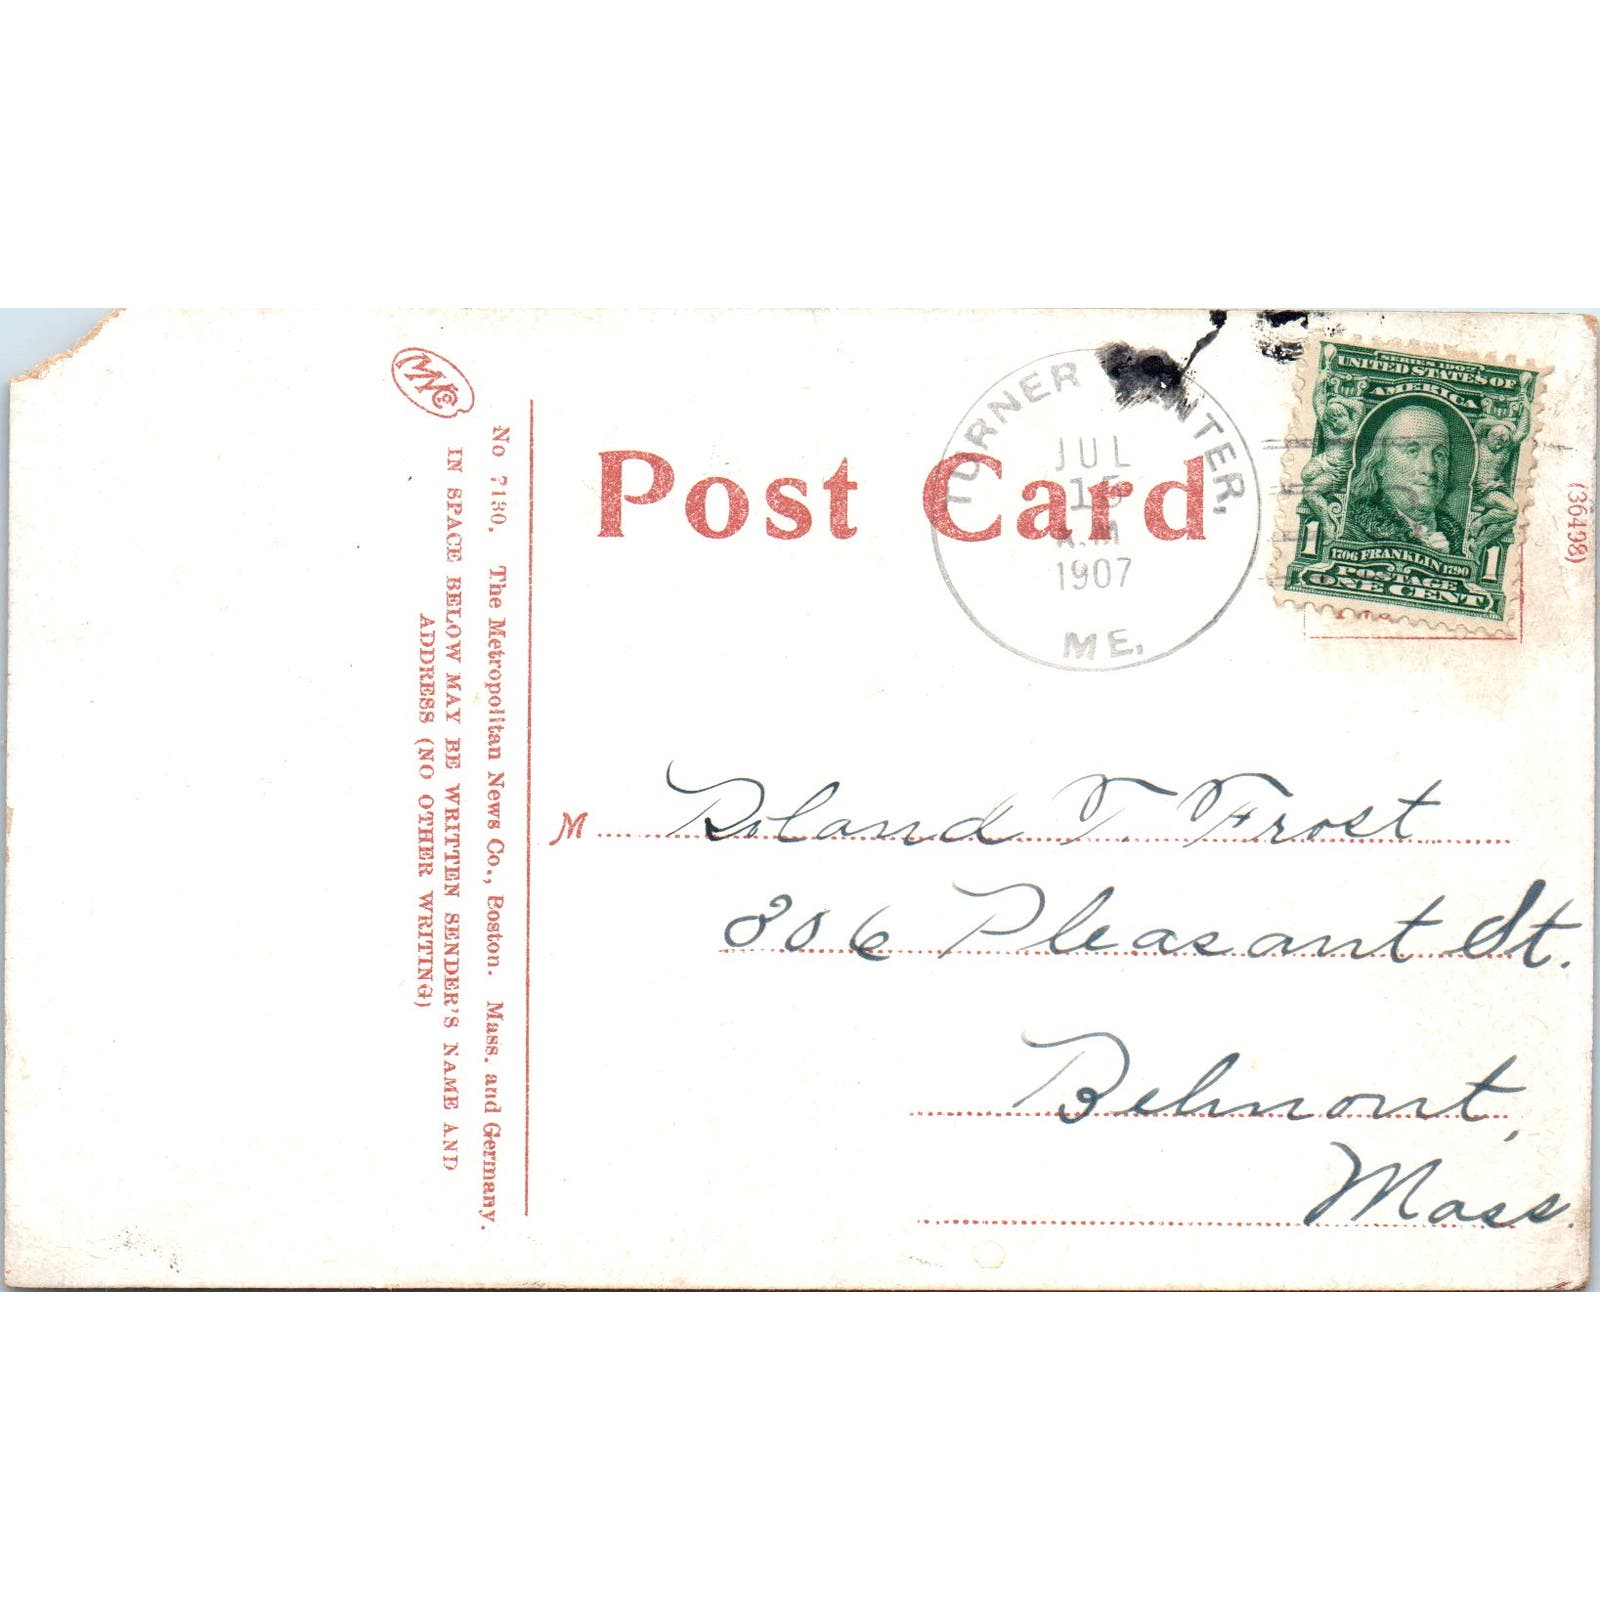 MNCo
No 7130. The Metropolitan News Co., Boston. Mass. and Germany.
IN SPACE BELOW MAY BE WRITTEN SENDER'S NAME AND
ADDRESS (NO OTHER WRITING)
Post Card
TURNER
JUL
15
A.M
1907
ME.
SERIES 1902
UNITED STATES OF
AMERICA
1706 FRANKLIN 1790
1 1
POSTAGE
ONE CENT
(36498)
M Roland T. Frost
306 Pleasant St.
Belmont,
Mass.